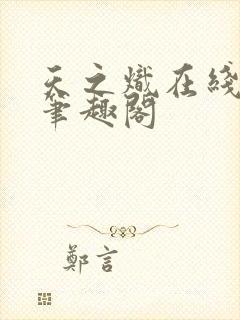 天之熾在綫
筆趣閣
鄭言